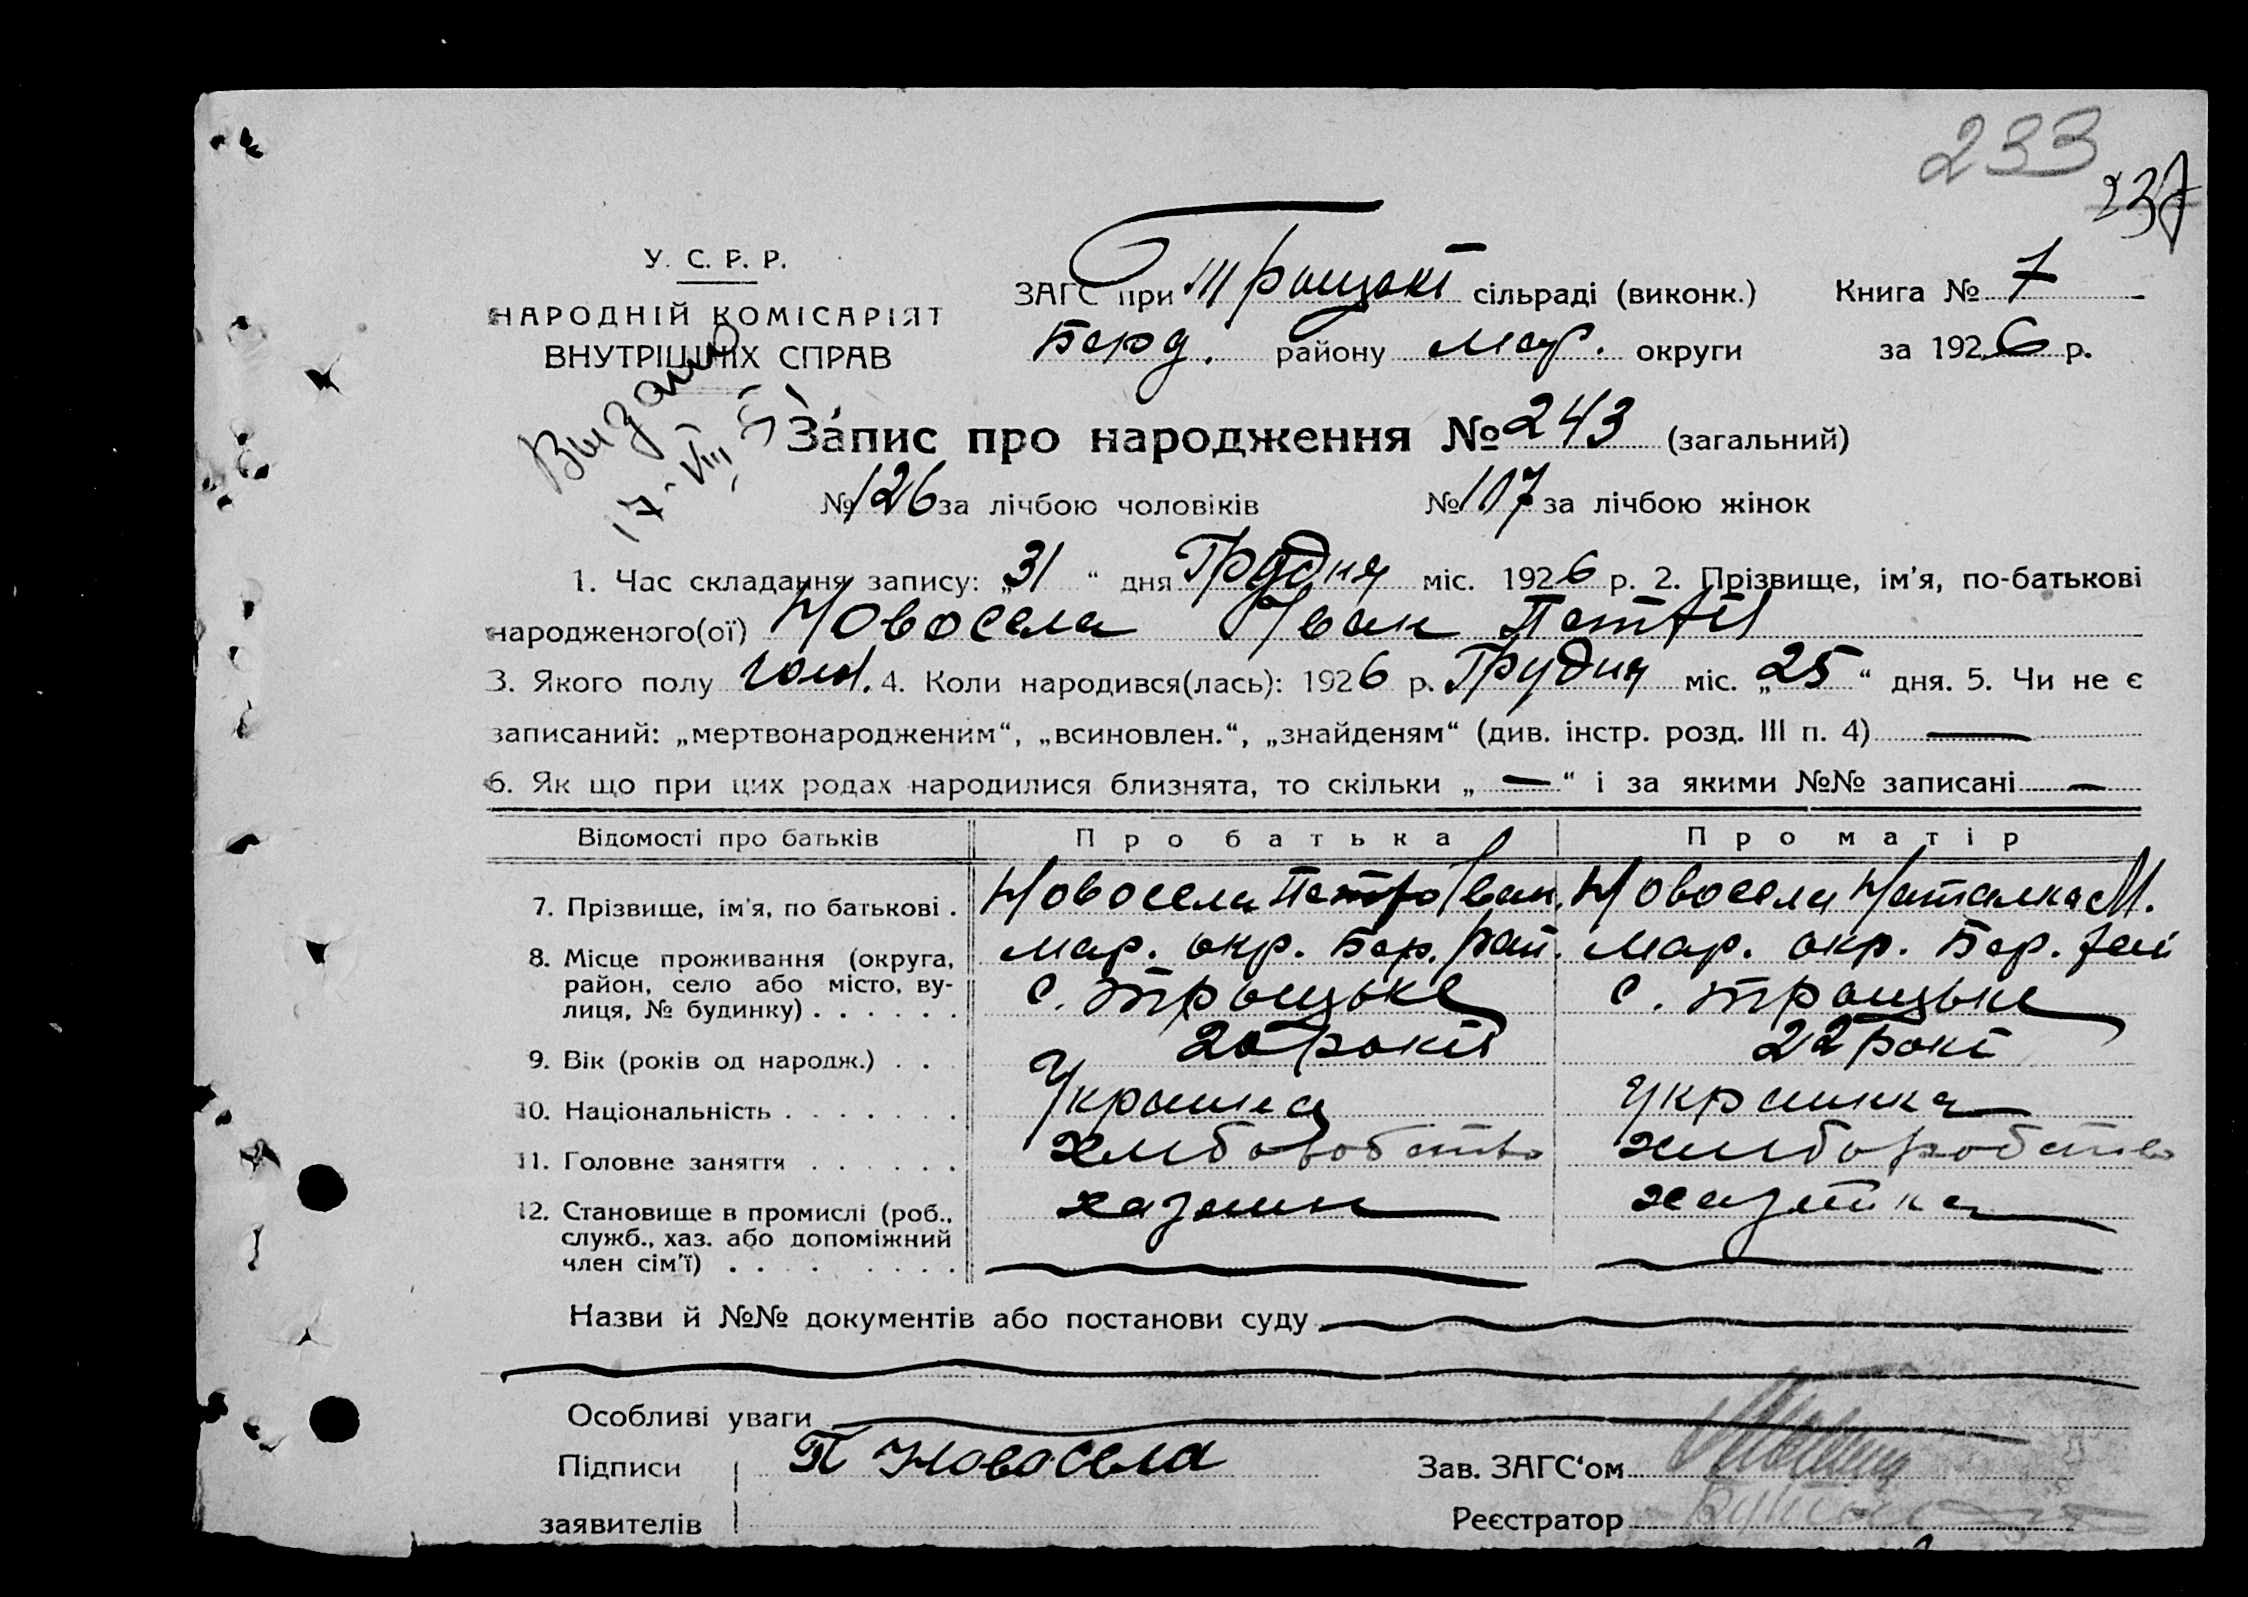 233
237
У. С. Р. Р.
НАРОДНІЙ КОМІСАРІЯТ
ВНУТРІШНІХ СПРАВ
ЗАГС при Троцькі сільраді (виконк.) Книга № 7
Берд. району Мар. округи за 1926 р.
Выдано
17-VIII
Запис про народження № 243 (загальний)
№ 126 за лічбою чоловіків № 107 за лічбою жінок
1. Час складання запису: „31“ дня Грудня міс. 1926 р. 2. Прізвище, ім'я, по-батькові
народженого(ої) Новосела Іван Петр
3. Якого полу чол. 4. Коли народився(лась): 1926 р. Грудня міс. „25“ дня. 5. Чи не є
записаний: „мертвонародженим“, „всиновлен.“, „знайденям“ (див. інстр. розд. III п. 4) —
6. Як що при цих родах народилися близнята, то скільки „—“ і за якими №№ записані —
Відомості про батьків Про батька Про матір
7. Прізвище, ім'я, по батькові . Новосела Петро Іван. Новосела Наталка М.
8. Місце проживання (округа, Мар. окр. Бер. рай. Мар. окр. Бер. рай
район, село або місто, ву- с. Троцьке с. Троцьке
лиця, № будинку) . . . . . .
9. Вік (років од народж.) . . 20 років 22 рокі
10. Національність . . . . . . . Украинец Украинка
11. Головне заняття . . . . . . хлиборобство хлиборобство
12. Становище в промислі (роб., хазяин хазяйка
служб., хаз. або допоміжний
член сім'ї) . . . . . . .
Назви й №№ документів або постанови суду
Особливі уваги
Підписи П Новосела Зав. ЗАГС'ом
заявителів Реєстратор